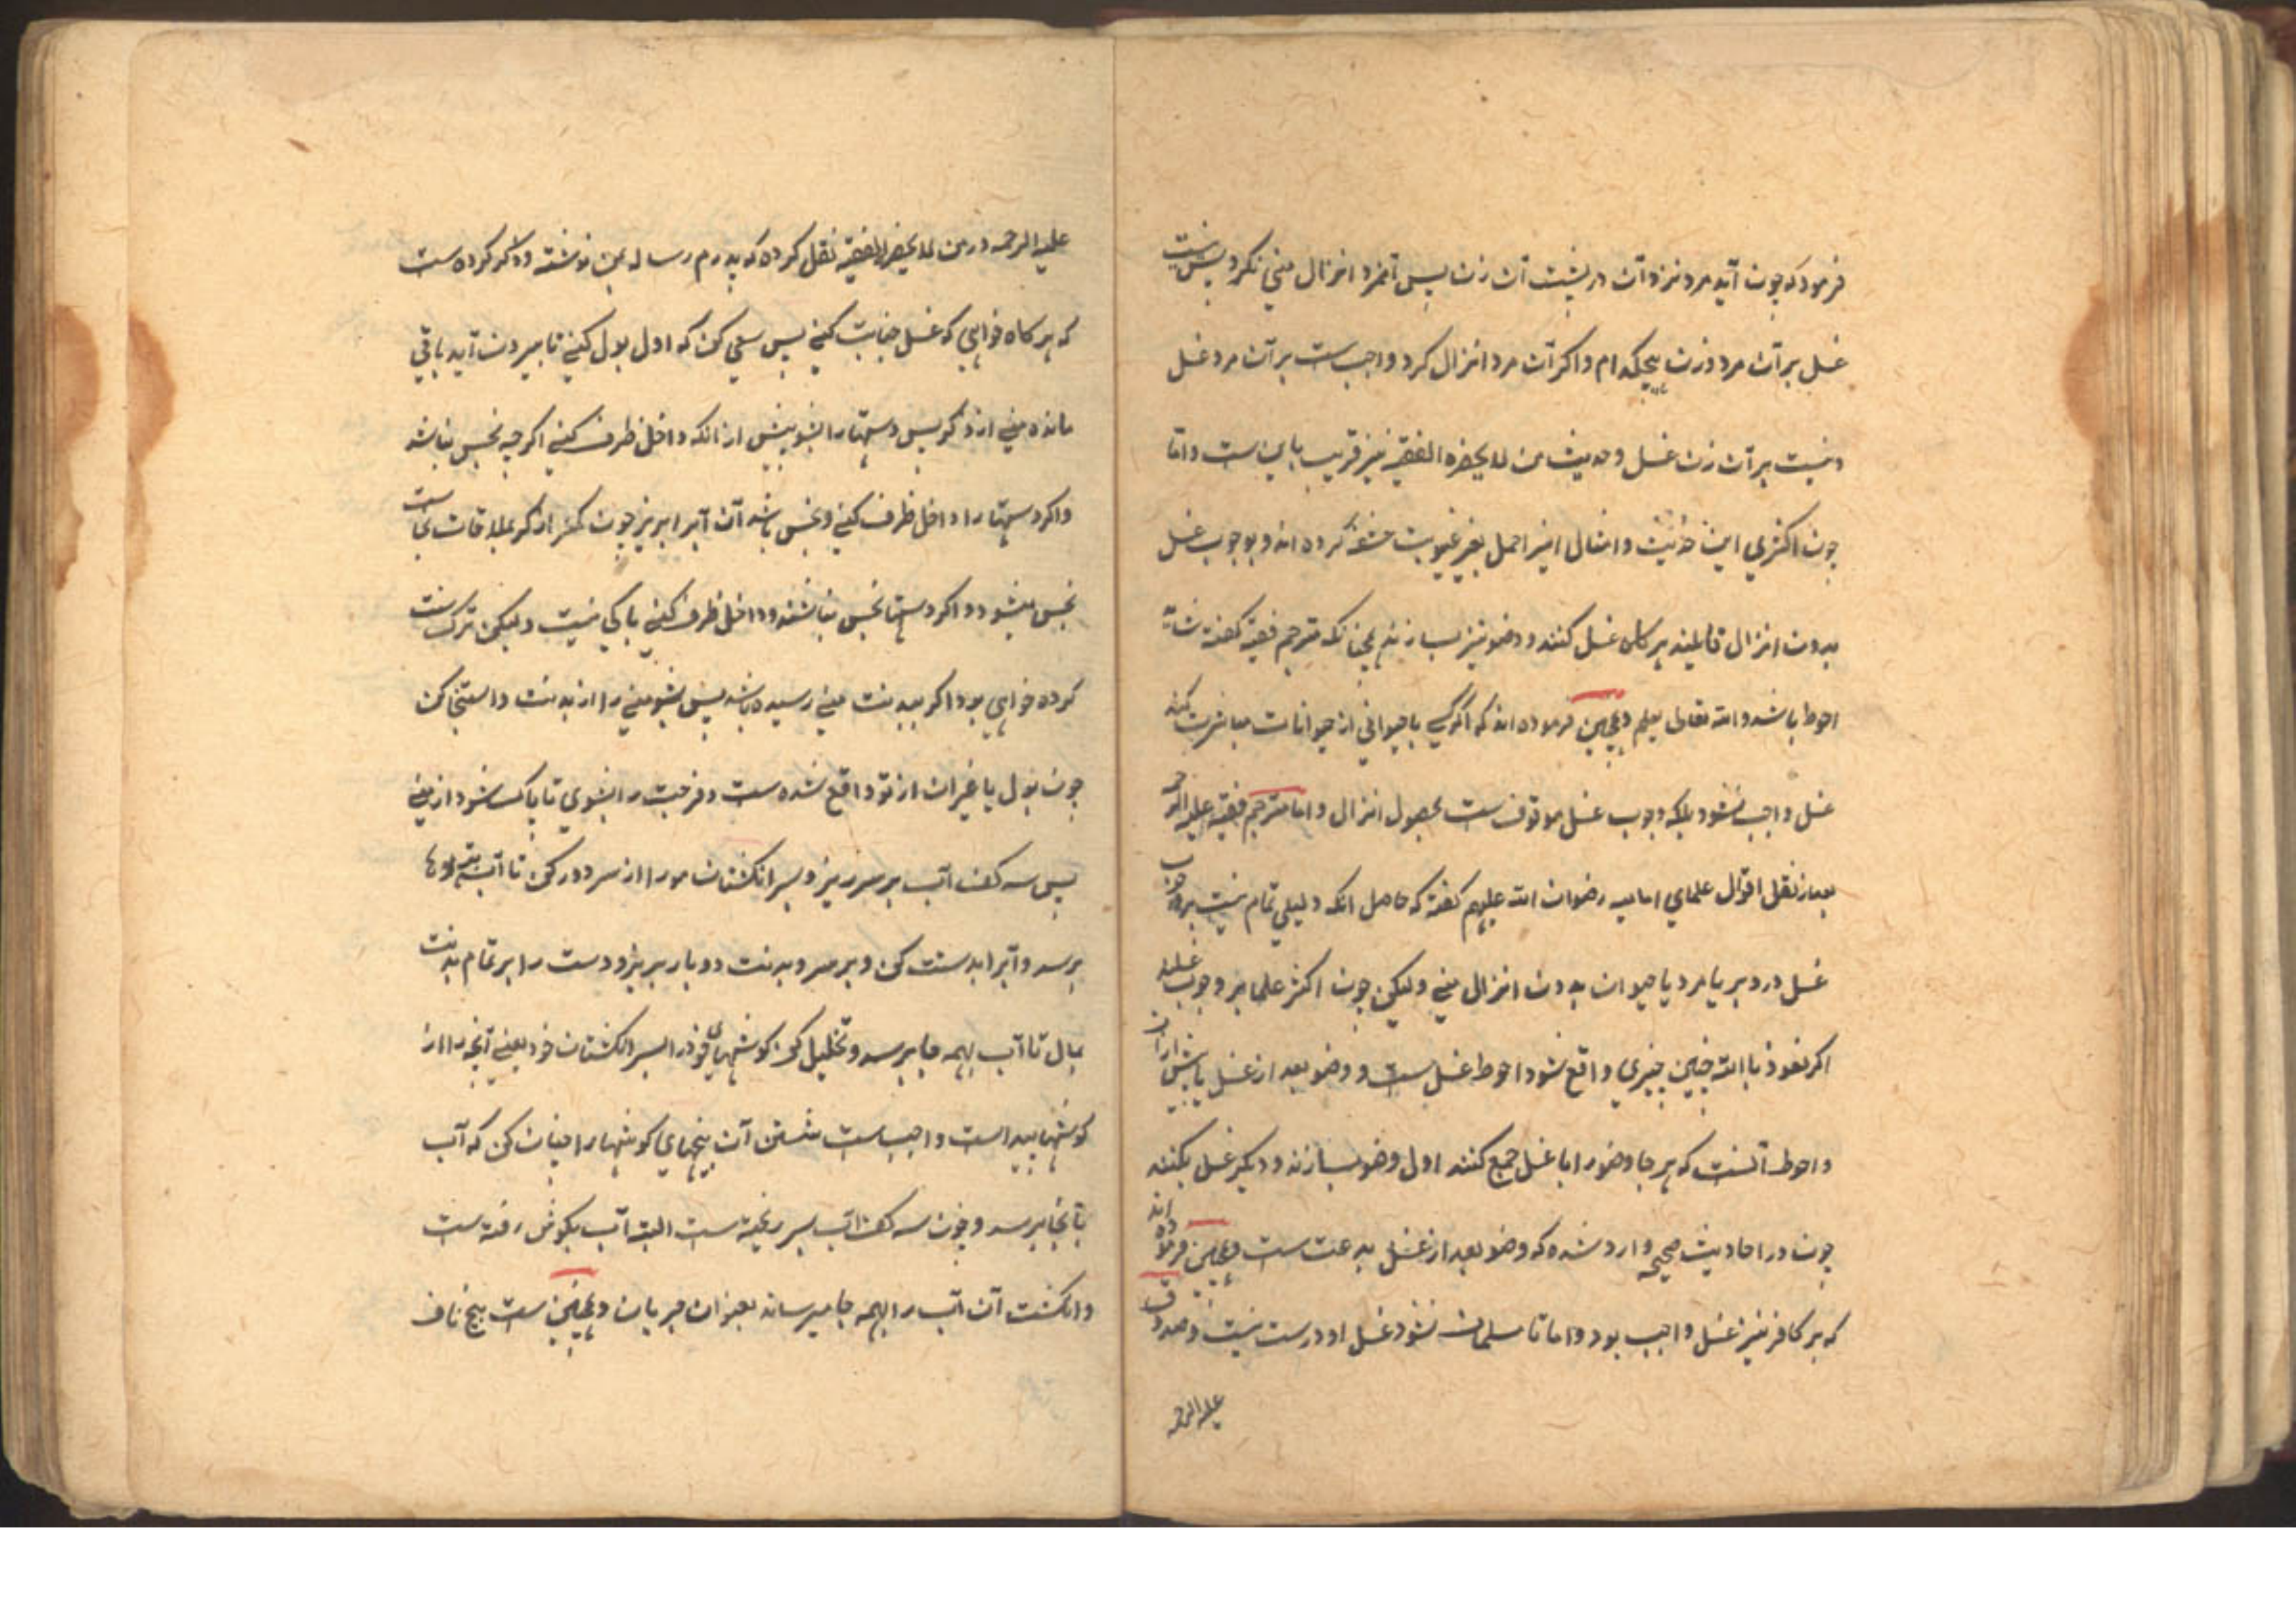 فرمود که چون آید مرد نزد آن در پشت آن زن پس آنمرد انزال منی نکرد پس نیست
غسل بر آن مرد و زن هیچکدام و اکر آن مرد انزال کرد واجب ست بر آن مرد غسل
و نیست بر آن زن غسل و حدیث من لا یحضره الفقیه نیز قریب باین ست و اما
چون اکثری این حدیث و امثال اینرا حمل بغیر غیبوبت حشفه کرده اند و بوجوب غسل
بدون انزال قایلند هرکاه غسل کنند و وضو نیز بسازند چنانکه مترجم فقیه کفته شاید
احوط باشد و الله تعالی یعلم و همچنین فرموده اند که اکر کسی با حیوانی از حیوانات مباشرت کند
غسل واجب نشود بلکه وجوب غسل موقوف ست بحصول انزال و اما مترجم فقیه علیه الرحمه
بعد از نقل اقوال علمای امامیه رضوان الله علیهم کفته که حاصل انکه دلیلی تمام نیست بر وجوب
غسل در دبر یا مرد یا حیوان بدون انزال منی ولیکن چون اکثر علما بر وجوب غسلند
اکر نعوذ باالله چنین چیزی واقع شود احوط غسل ست و وضو بعد از غسل یا پیش از آن
و احوط آنست که هر جا وضو را با غسل جمع کنند اول وضو بسازند و دیکر غسل بکنند
چون در احادیث صحیحه وارد شده که وضو بعد از غسل بدعت ست و همچنین فرموده اند
که بر کافر نیز غسل واجب بود و اما تا مسلمان نشود غسل او درست نیست و صدوق
علیه الرحمه
علیه الرحمه در من لا یحضره الفقیه نقل کرده که پدرم رساله بمن نوشته و ذکر کرده ست
که هر کاه خواهی که غسل جنابت کنی پس سعی کن که اول بول کنی تا بیرون آید باقی
مانده منی از ذکر پس دستها را بشو پیش از انکه داخل ظرف کنی اکرچه نجس نباشد
و اکر دستها را داخل ظرف کنی و نجس باشد آن آبرا بریز چون کمتر از کر بملاقات نجاست
نجس میشود و اکر دستها نجس نباشند و داخل ظرف کنی باکی نیست ولیکن ترک سنت
کرده خواهی بود اکر ببدنت منی رسیده باشد پس بشو منی را از بدنت و استنجا کن
چون بول یا غیر ان از تو واقع شده ست و فرجت را بشوی تا پاک شود از منی
پس سه کف آب بر سر ریز و بسر انکشتان مو را از سر دور کن تا آب به ته موها
برسد و آبرا بدست کن و بر سر و بدنت دو بار بریز و دست را بر تمام بدنت
بمال تا آب بهمه جا برسد و تخلیل کن کوشهای خود را بسر انکشتان خود یعنی آنچه را از
کوشها پیداست واجب ست شستن آن بیخهای کوشها را چنان کن که آب
بآنجا برسد و چون سه کف آب بسر ریخته ست البته آب بکوش رفته ست
و انکشت آن آب را بهمه جا میرساند بعنوان جریان و همچنین ست بیخ ناف